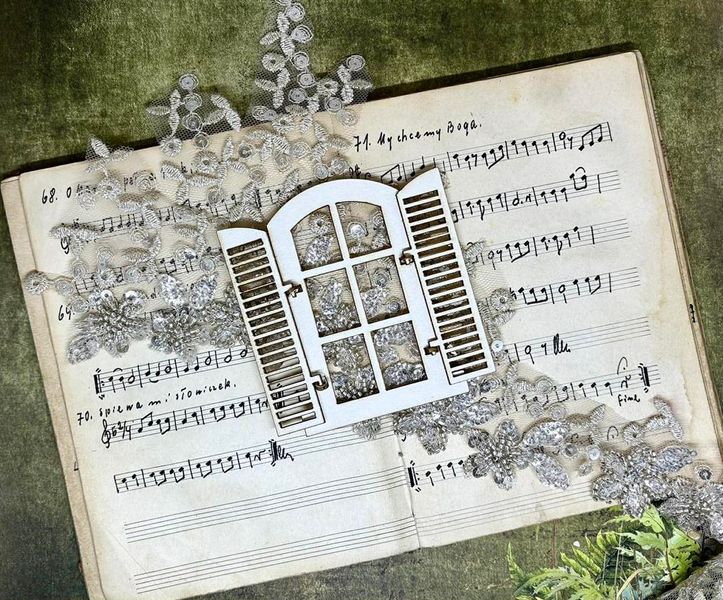 68. O
71. My chcemy Boga.
69.
70. śpiewa mi słowiczek.
Fine